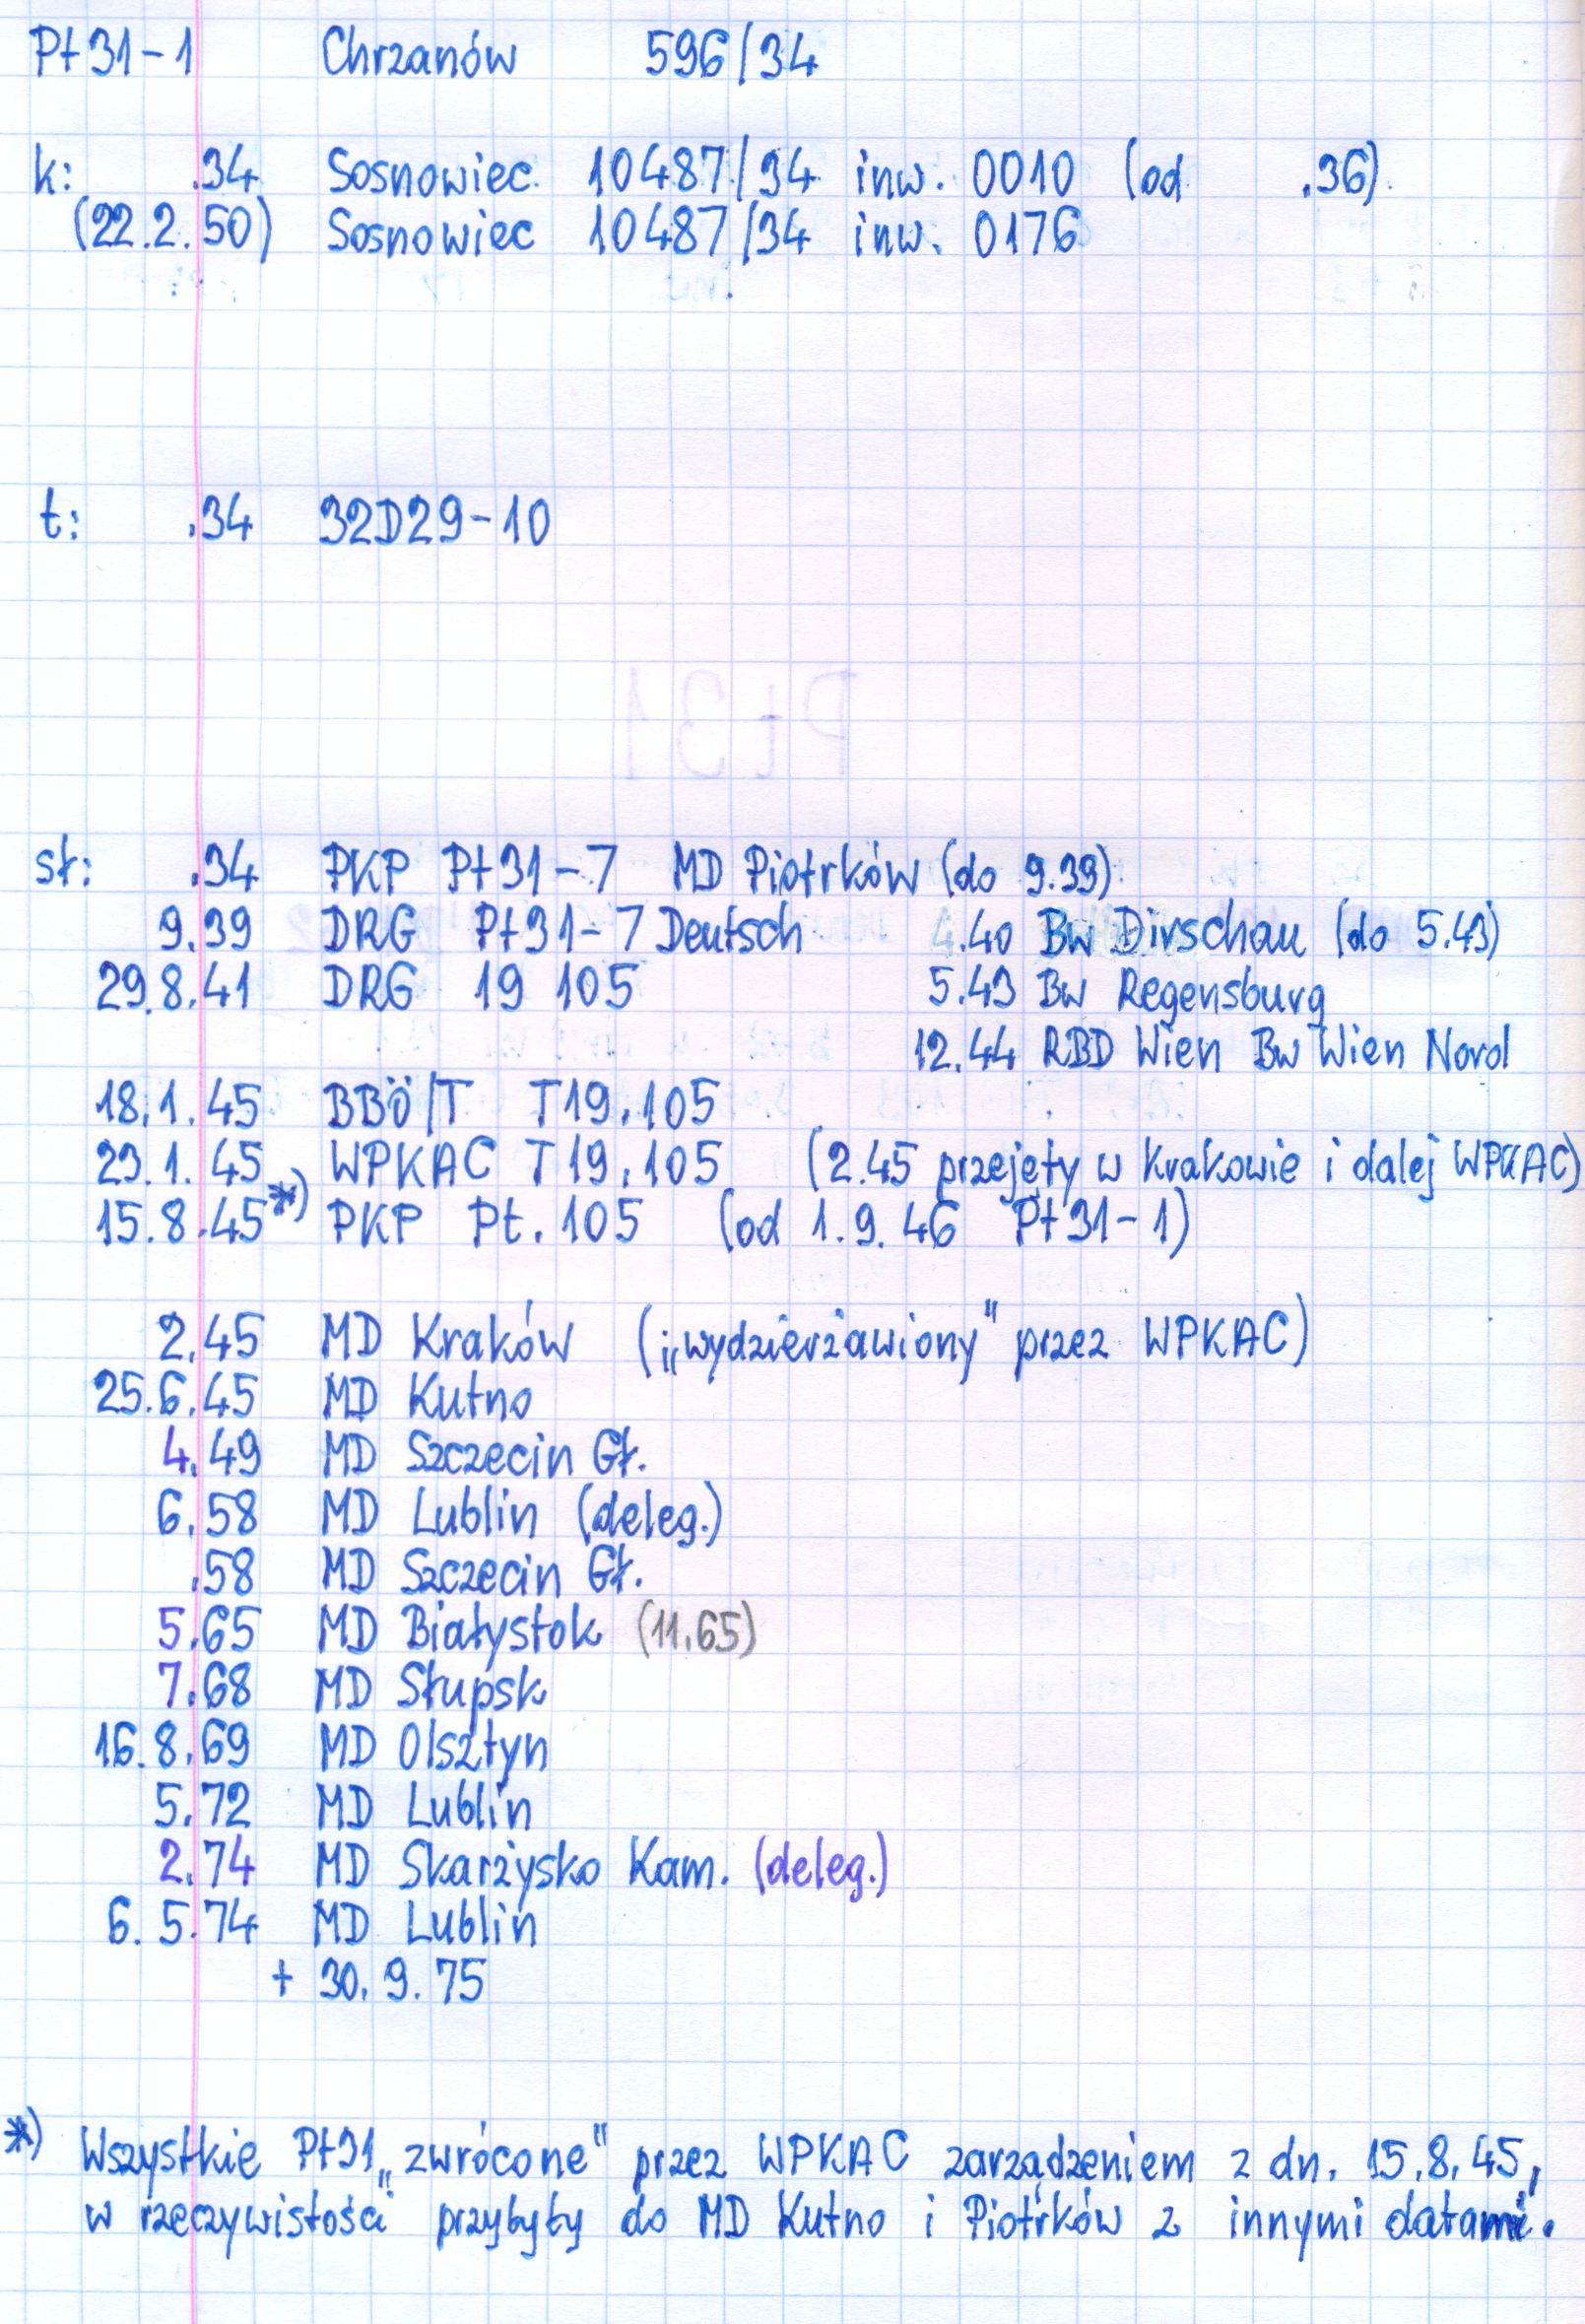 Pt31-1 Chrzanów 596/34
k: .34 Sosnowiec 10487/34 inw. 0010 (od .36)
(22.2.50) Sosnowiec 10487/34 inw. 0176
t: .34 32D29-10
Pt31
st: .34 PKP Pt31-7 MD Piotrków (do 9.39)
9.39 DRG Pt31-7 Deutsch 4.40 Bw Dirschau (do 5.43)
29.8.41 DRG 19 105 5.43 Bw Regensburg
12.44 RBD Wien Bw Wien Nord
18.1.45 BBÖ/T T19.105
23.1.45 WPKAC T19.105 (2.45 przejęty w Krakowie i dalej WPKAC)
15.8.45*) PKP Pt.105 (od 1.9.46 Pt31-1)
2.45 MD Kraków („wydzierżawiony" przez WPKAC)
25.6.45 MD Kutno
4.49 MD Szczecin Gł.
6.58 MD Lublin (deleg.)
.58 MD Szczecin Gł.
5.65 MD Białystok (11.65)
7.68 MD Słupsk
16.8.69 MD Olsztyn
5.72 MD Lublin
2.74 MD Skarżysko Kam. (deleg.)
6.5.74 MD Lublin
+ 30.9.75
*) Wszystkie Pt31 „zwrócone" przez WPKAC zarządzeniem z dn. 15.8.45,
w rzeczywistości przybyły do MD Kutno i Piotrków z innymi datami.